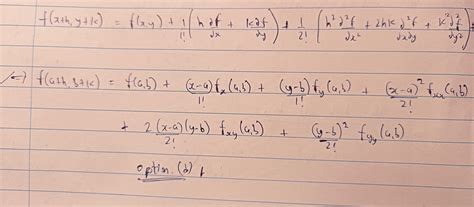 f(x+h, y+k) = f(x,y) + 1/1! (h ∂f/∂x + k∂f/∂y) + 1/2! (h² ∂²f/∂x² + 2hk ∂²f/∂x∂y + k² ∂²f/∂y²)
f(a+h, b+k) = f(a,b) + (x-a)/1! fx(a,b) + (y-b)/1! fy(a,b) + (x-a)²/2! fxx(a,b)
+ 2(x-a)(y-b)/2! fxy(a,b) + (y-b)²/2! fyy(a,b)
option (b)